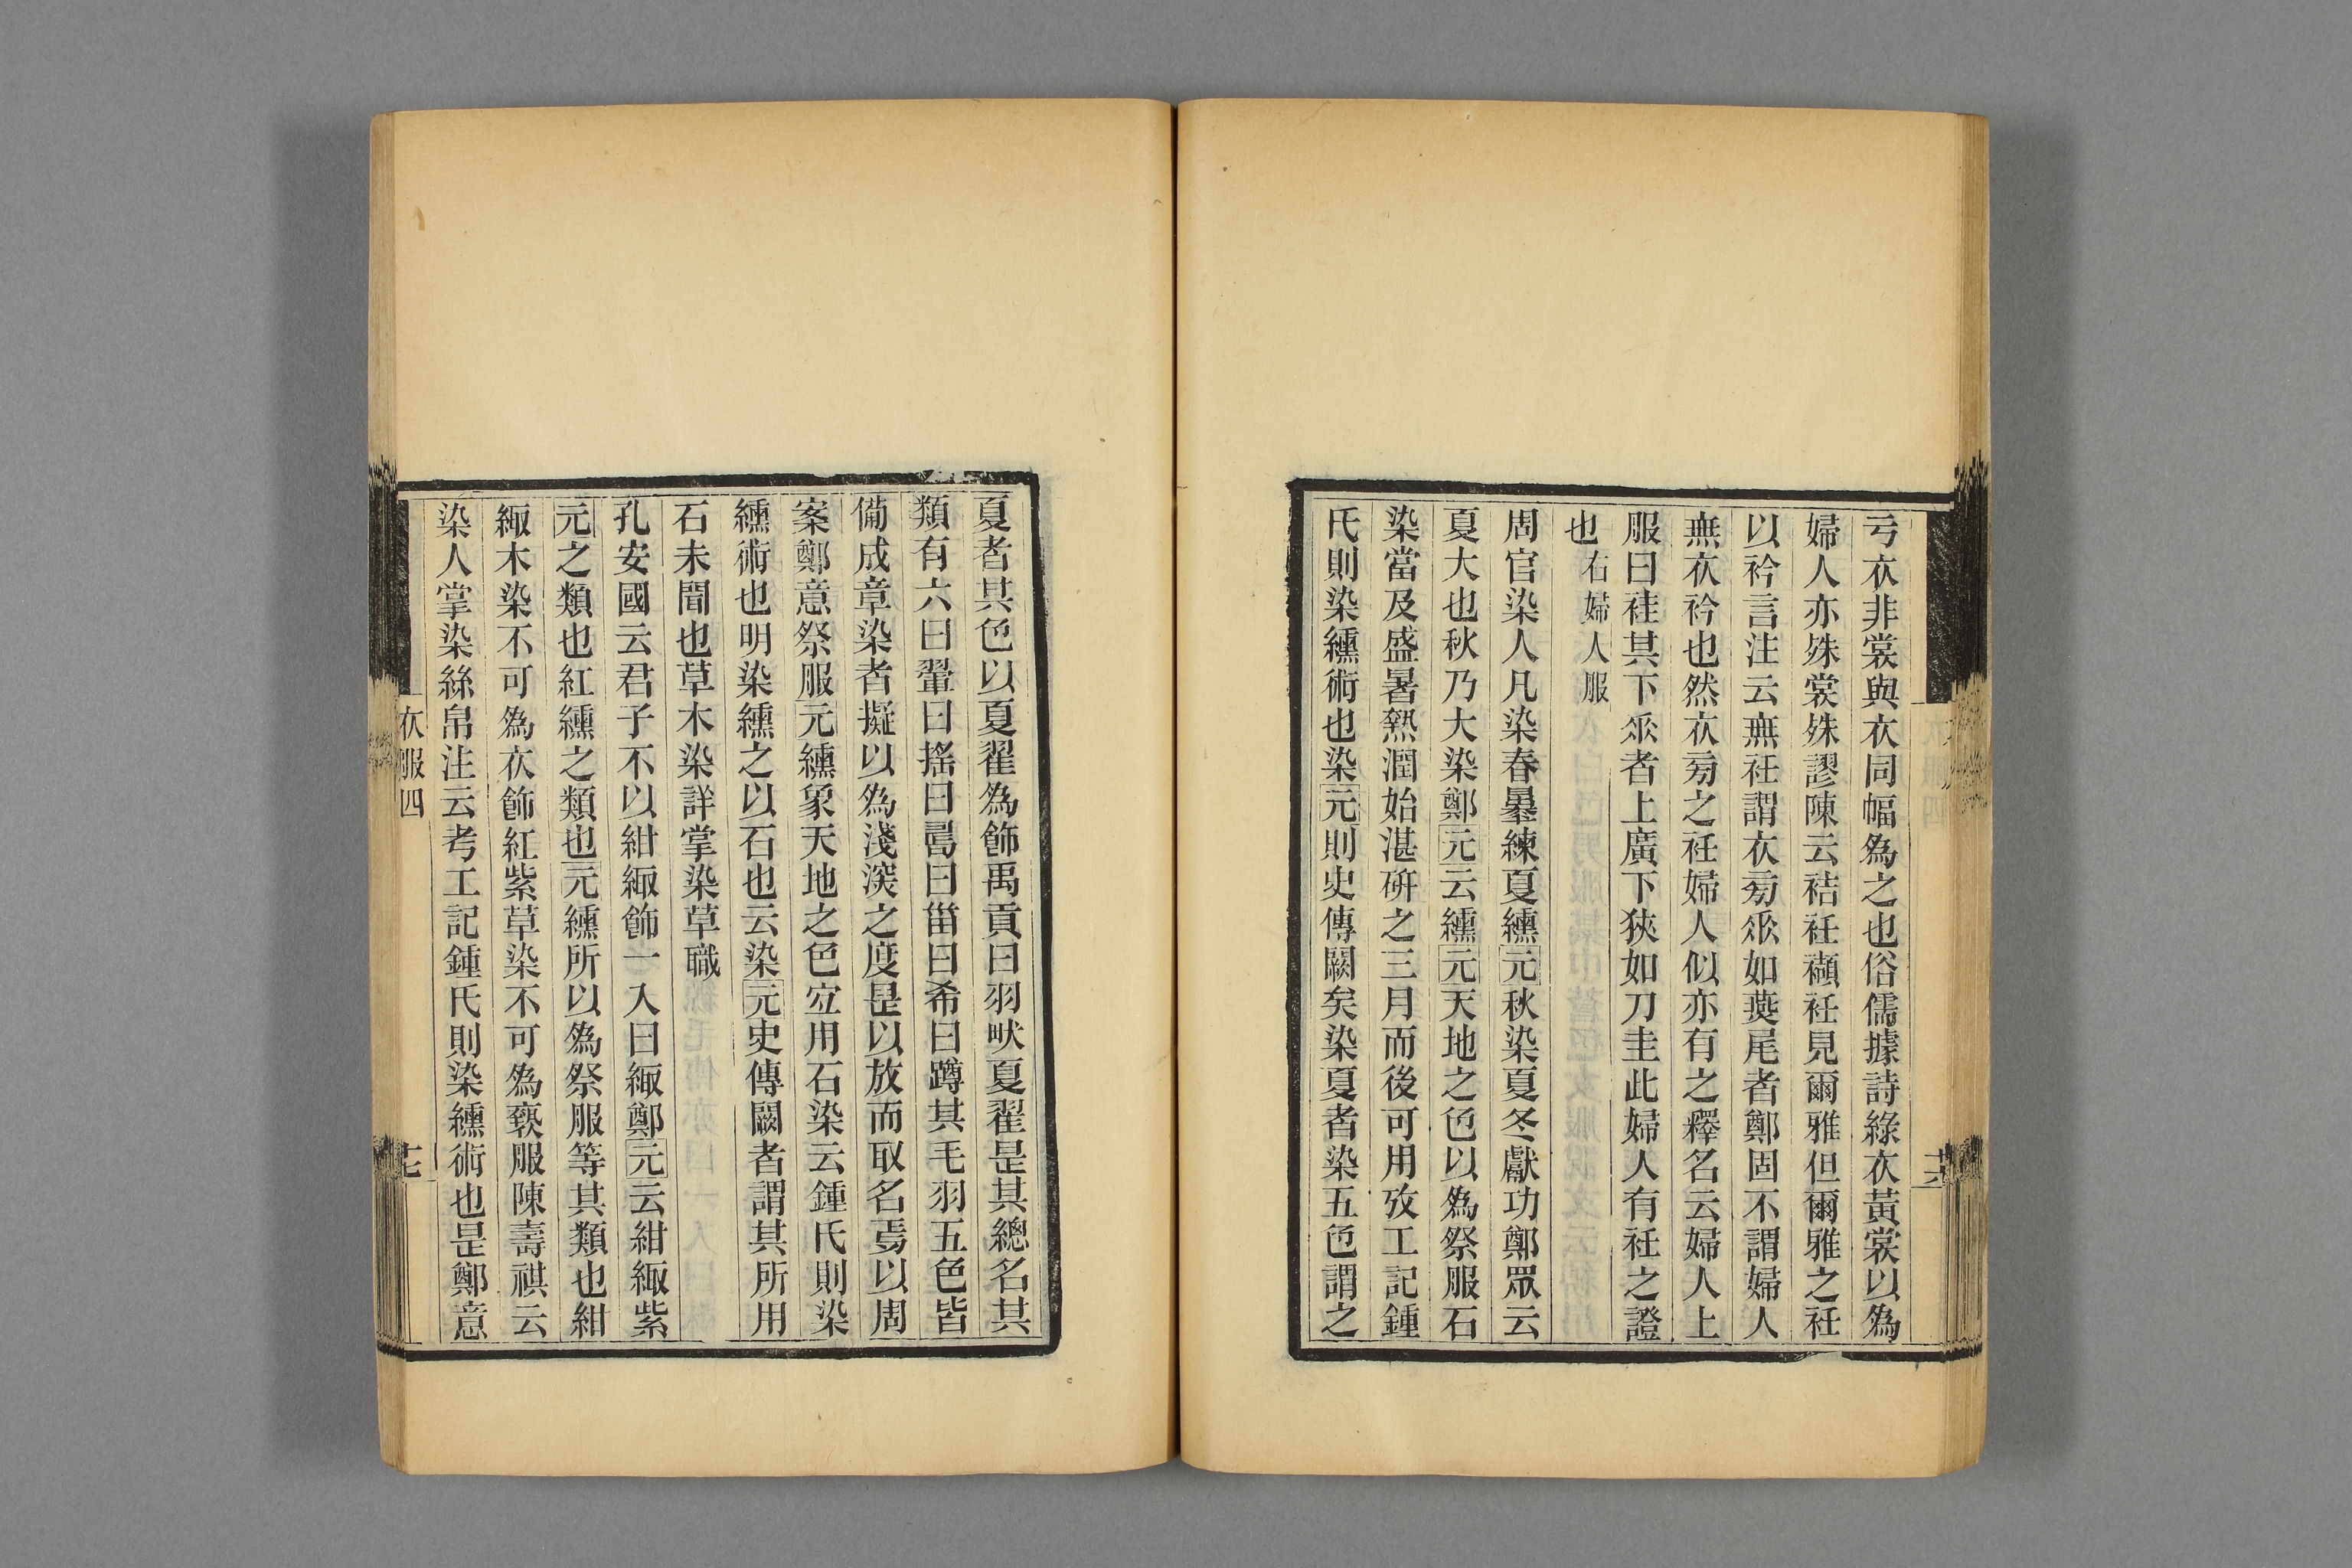 亏衣非裳與衣同幅為之也俗儒據詩綠衣黃裳以為
婦人亦殊裳殊謬陳云袺衽襭衽見爾雅但爾雅之衽
以衿言注云無衽謂衣旁㸚如燕尾者鄭固不謂婦人
無衣衿也然衣旁之衽婦人似亦有之釋名云婦人上
服曰袿其下𠂹者上廣下狹如刀圭此婦人有衽之證
也 右婦人服
周官染人凡染春暴練夏纁元秋染夏冬獻功鄭眾云
夏大也秋乃大染鄭元云纁元天地之色以為祭服石
染當及盛暑熱潤始湛硏之三月而後可用攷工記鍾
氏則染纁術也染元則史傳闕矣染夏者染五色謂之
夏者其色以夏翟為飾禹貢曰羽畎夏翟是其總名其
類有六曰翬曰搖曰𠷎曰甾曰希曰蹲其毛羽五色皆
備成章染者擬以為淺深之度是以放而取名焉以周
案鄭意祭服元纁象天地之色宜用石染云鍾氏則染
纁術也明染纁之以石也云染元史傳闕者謂其所用
石未聞也草木染詳掌染草職
孔安國云君子不以紺緅飾一入曰緅鄭元云紺緅紫
元之類也紅纁之類也元纁所以為祭服等其類也紺
緅木染不可為衣飾紅紫草染不可為褻服陳壽祺云
染人掌染絲帛注云考工記鍾氏則染纁術也是鄭意
衣服四
十七